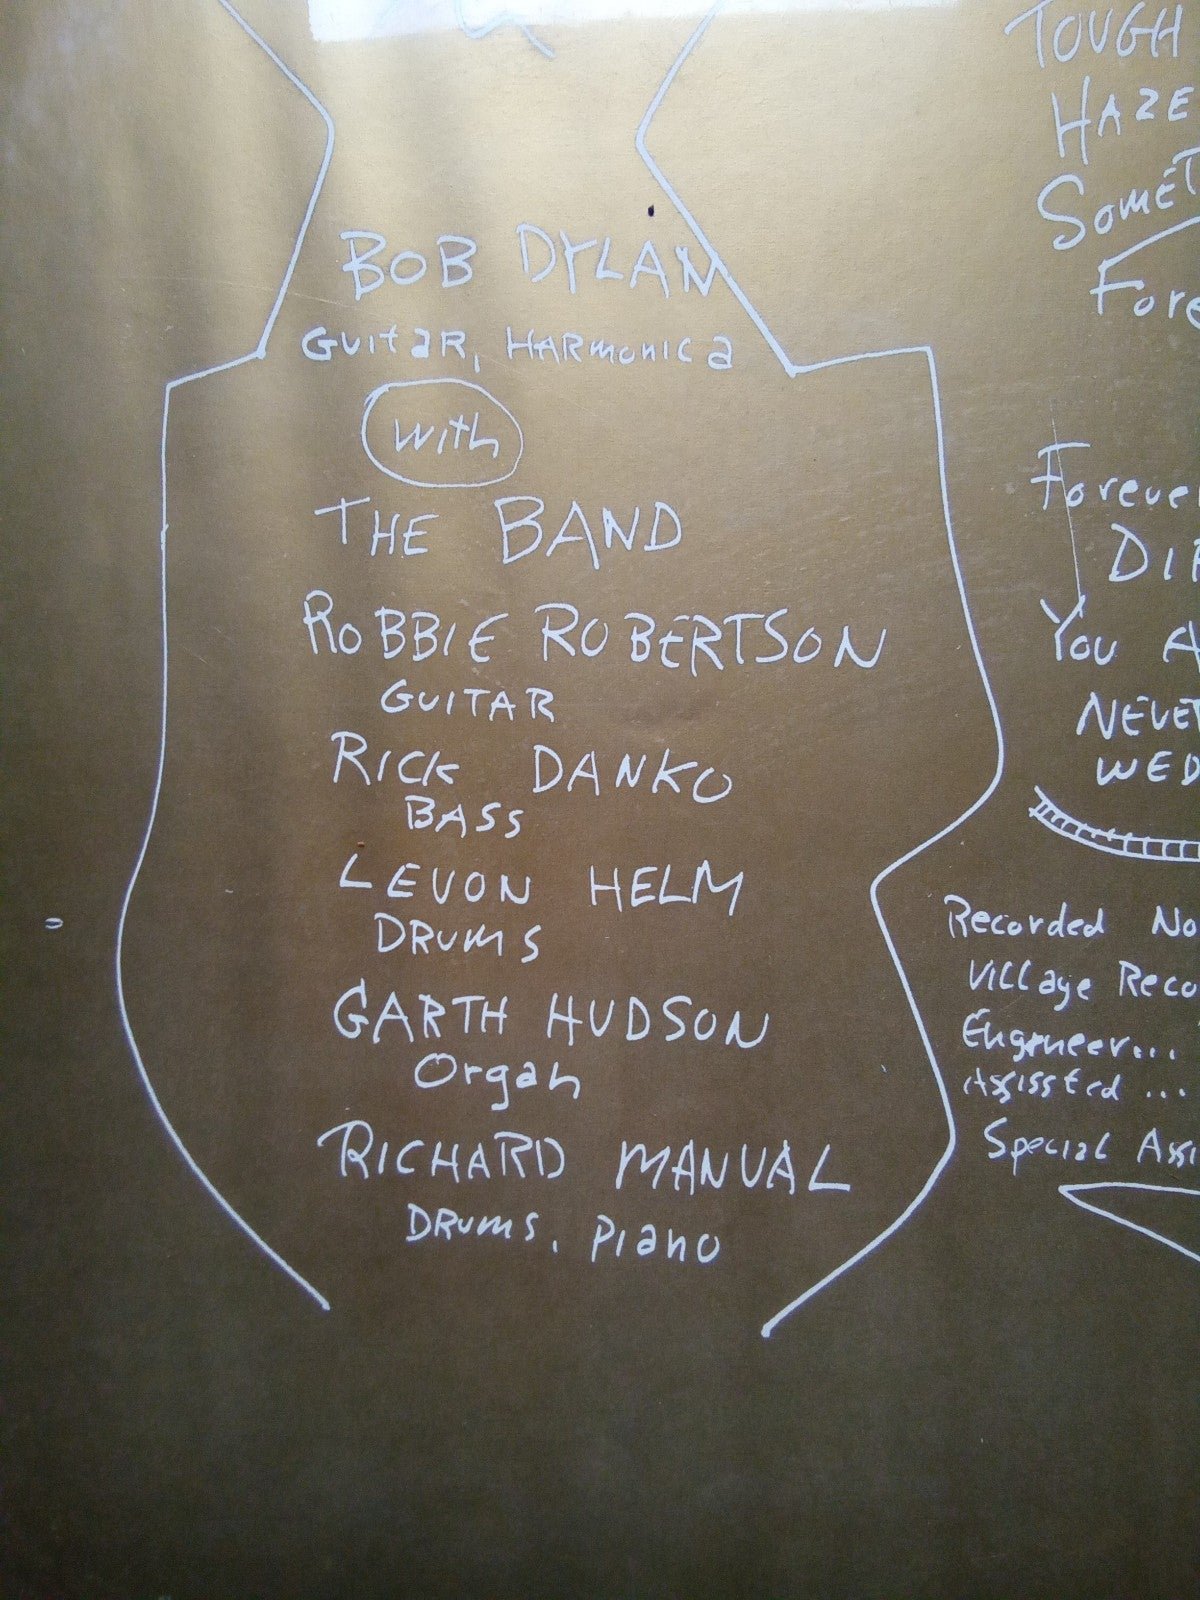 BOB DYLAN
Guitar, Harmonica
With
THE BAND
ROBBIE ROBERTSON
GUITAR
RICK DANKO
BASS
LEVON HELM
DRUMS
GARTH HUDSON
Organ
RICHARD MANUAL
DRUMS, Piano
TOUGH
HAZE
SOMET
Fore
Foreve
DI
You A
NEVET
WED
Recorded No
Village Reco
Engineer...
Assissted ...
Special Assi